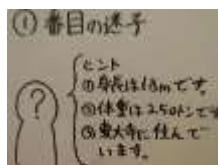 ① 番目の迷子
?
ヒント
① 身長は18mです。
② 体重は250トンです
③ 東大寺に住んで
います。